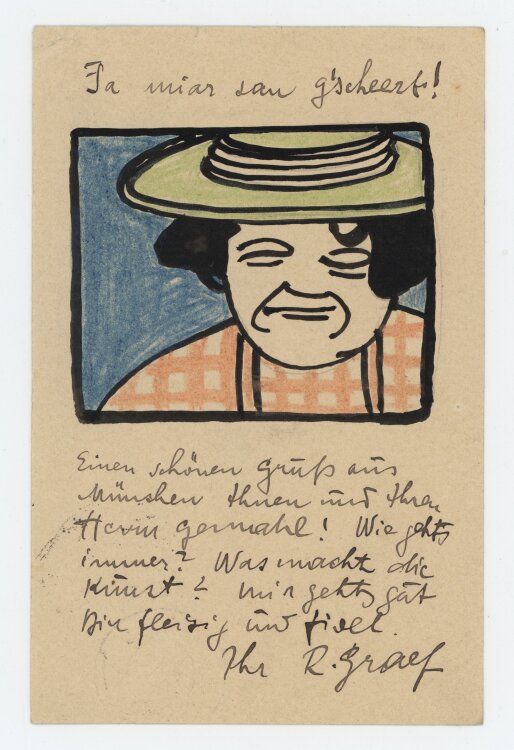 Ja miar san g'scheert!
Einen schönen Gruß aus
München Ihnen und Ihren
Herrn gemahl! Wie gehts
immer? Was macht die
Kunst? mir gehts gut
Bin fleisig und fidel.
Ihr R. Graef